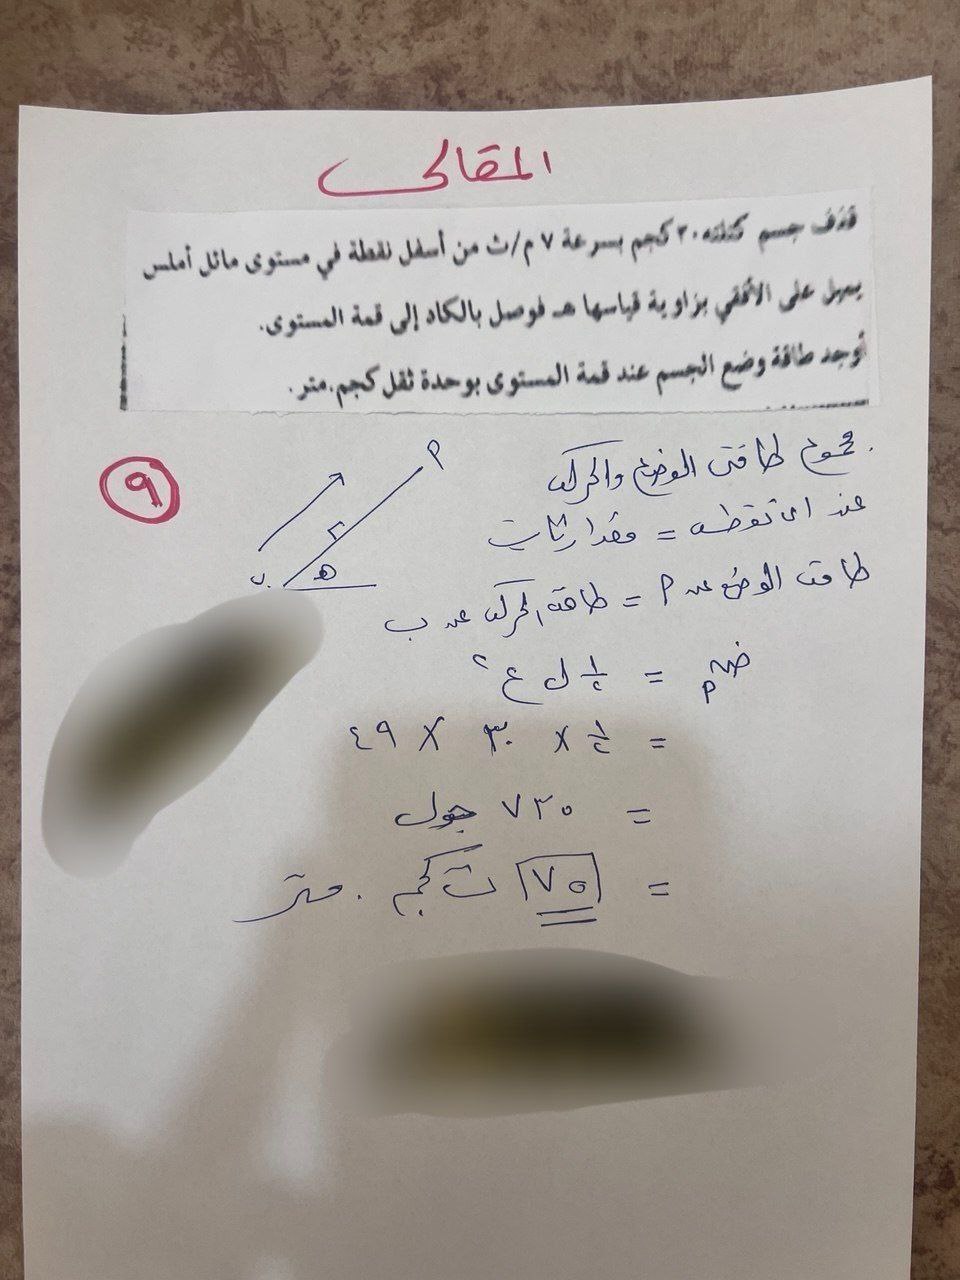 المقالى
قذف جسم كتلته ٣٠ كجم بسرعة ٧ م/ث من أسفل نقطة في مستوى مائل أملس
يميل على الأفقي بزاوية قياسها هـ فوصل بالكاد إلى قمة المستوى.
أوجد طاقة وضع الجسم عند قمة المستوى بوحدة ثقل كجم.متر.
٩
م
ب
هـ
مجموع طاقتى الوضع والحركه
عند اى نقطه = مقدار ثابت
طاقة الوضع عند م = طاقة الحركه عند ب
ضم = ١/٢ ل ع ٢
= ١/٢ × ٣٠ × ٤٩
= ٧٣٥ جول
= ٧٥ ث كجم . متر